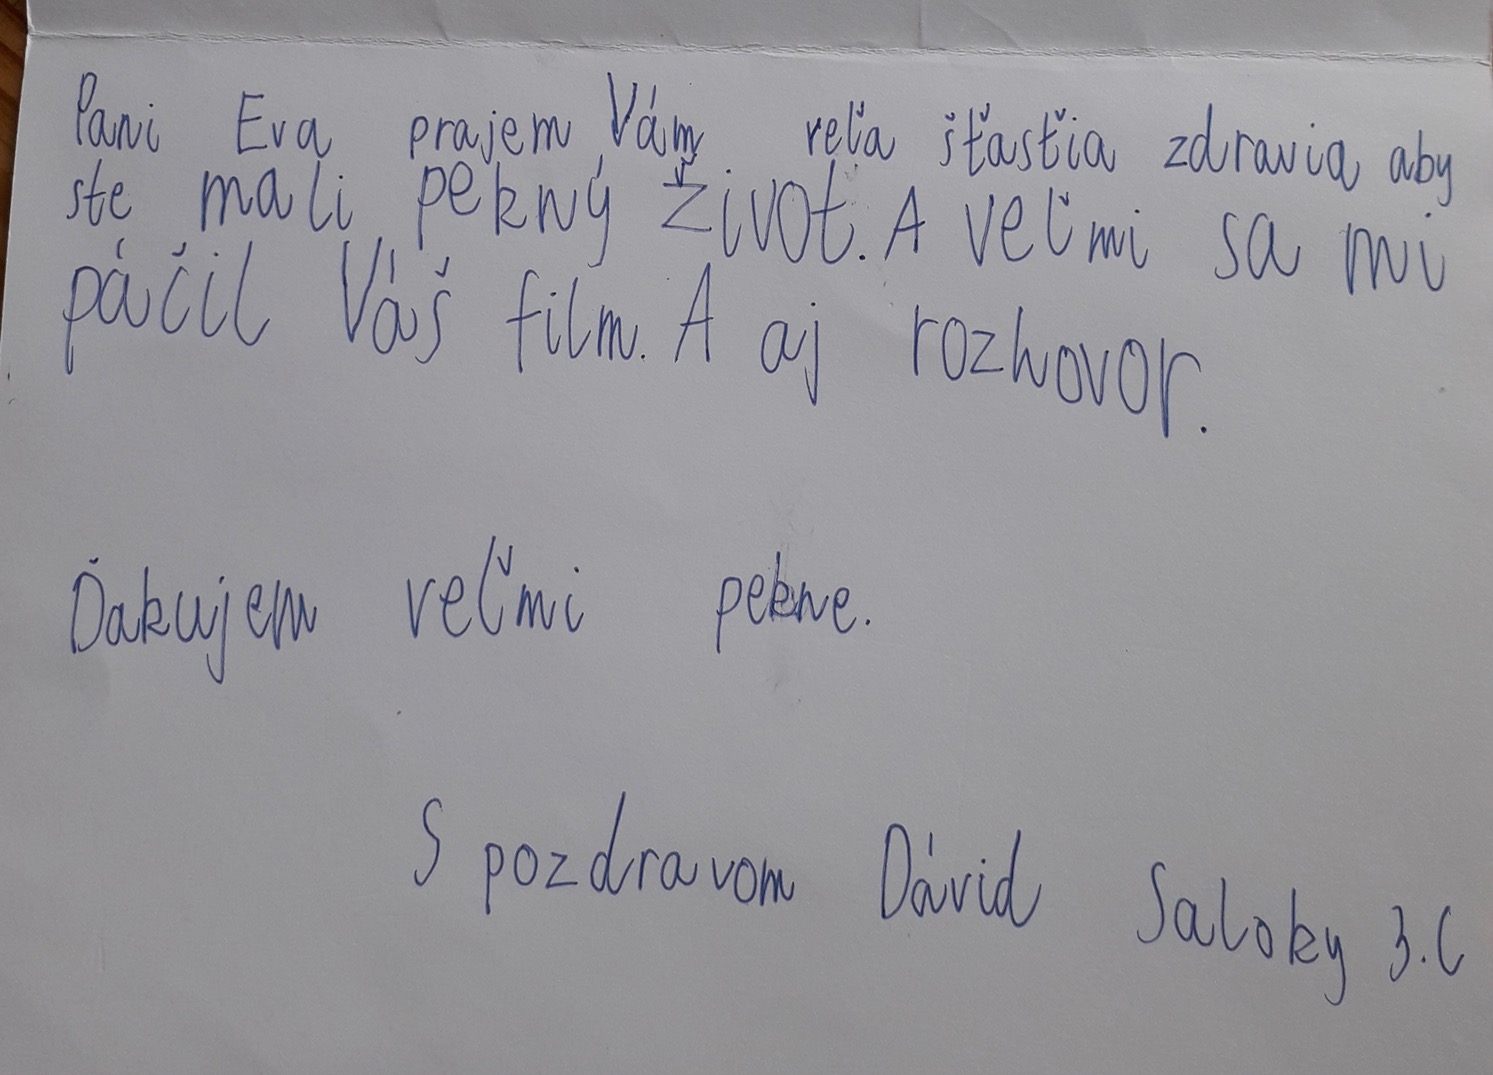 Pani Eva prajem Vám veľa šťasťia zdravia aby
ste mali pekný život. A veľmi sa mi
páčil Váš film. A aj rozhovor.
Ďakujem veľmi pekne.
S pozdravom Dávid Saloky 3.C